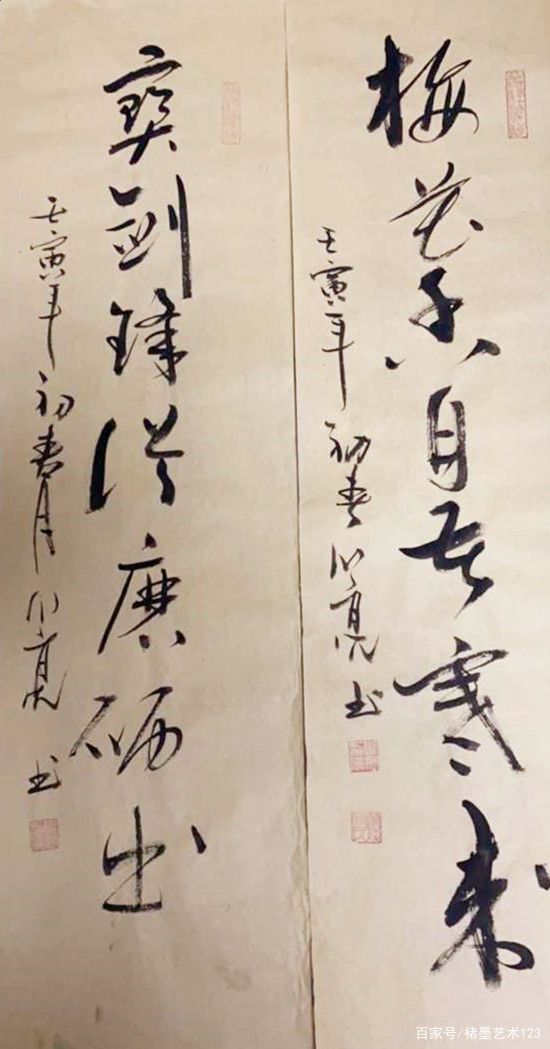 梅花香自苦寒来
壬寅年初春川亮书
宝剑锋从磨砺出
壬寅年初春月川亮书
百家号/楮墨艺术123